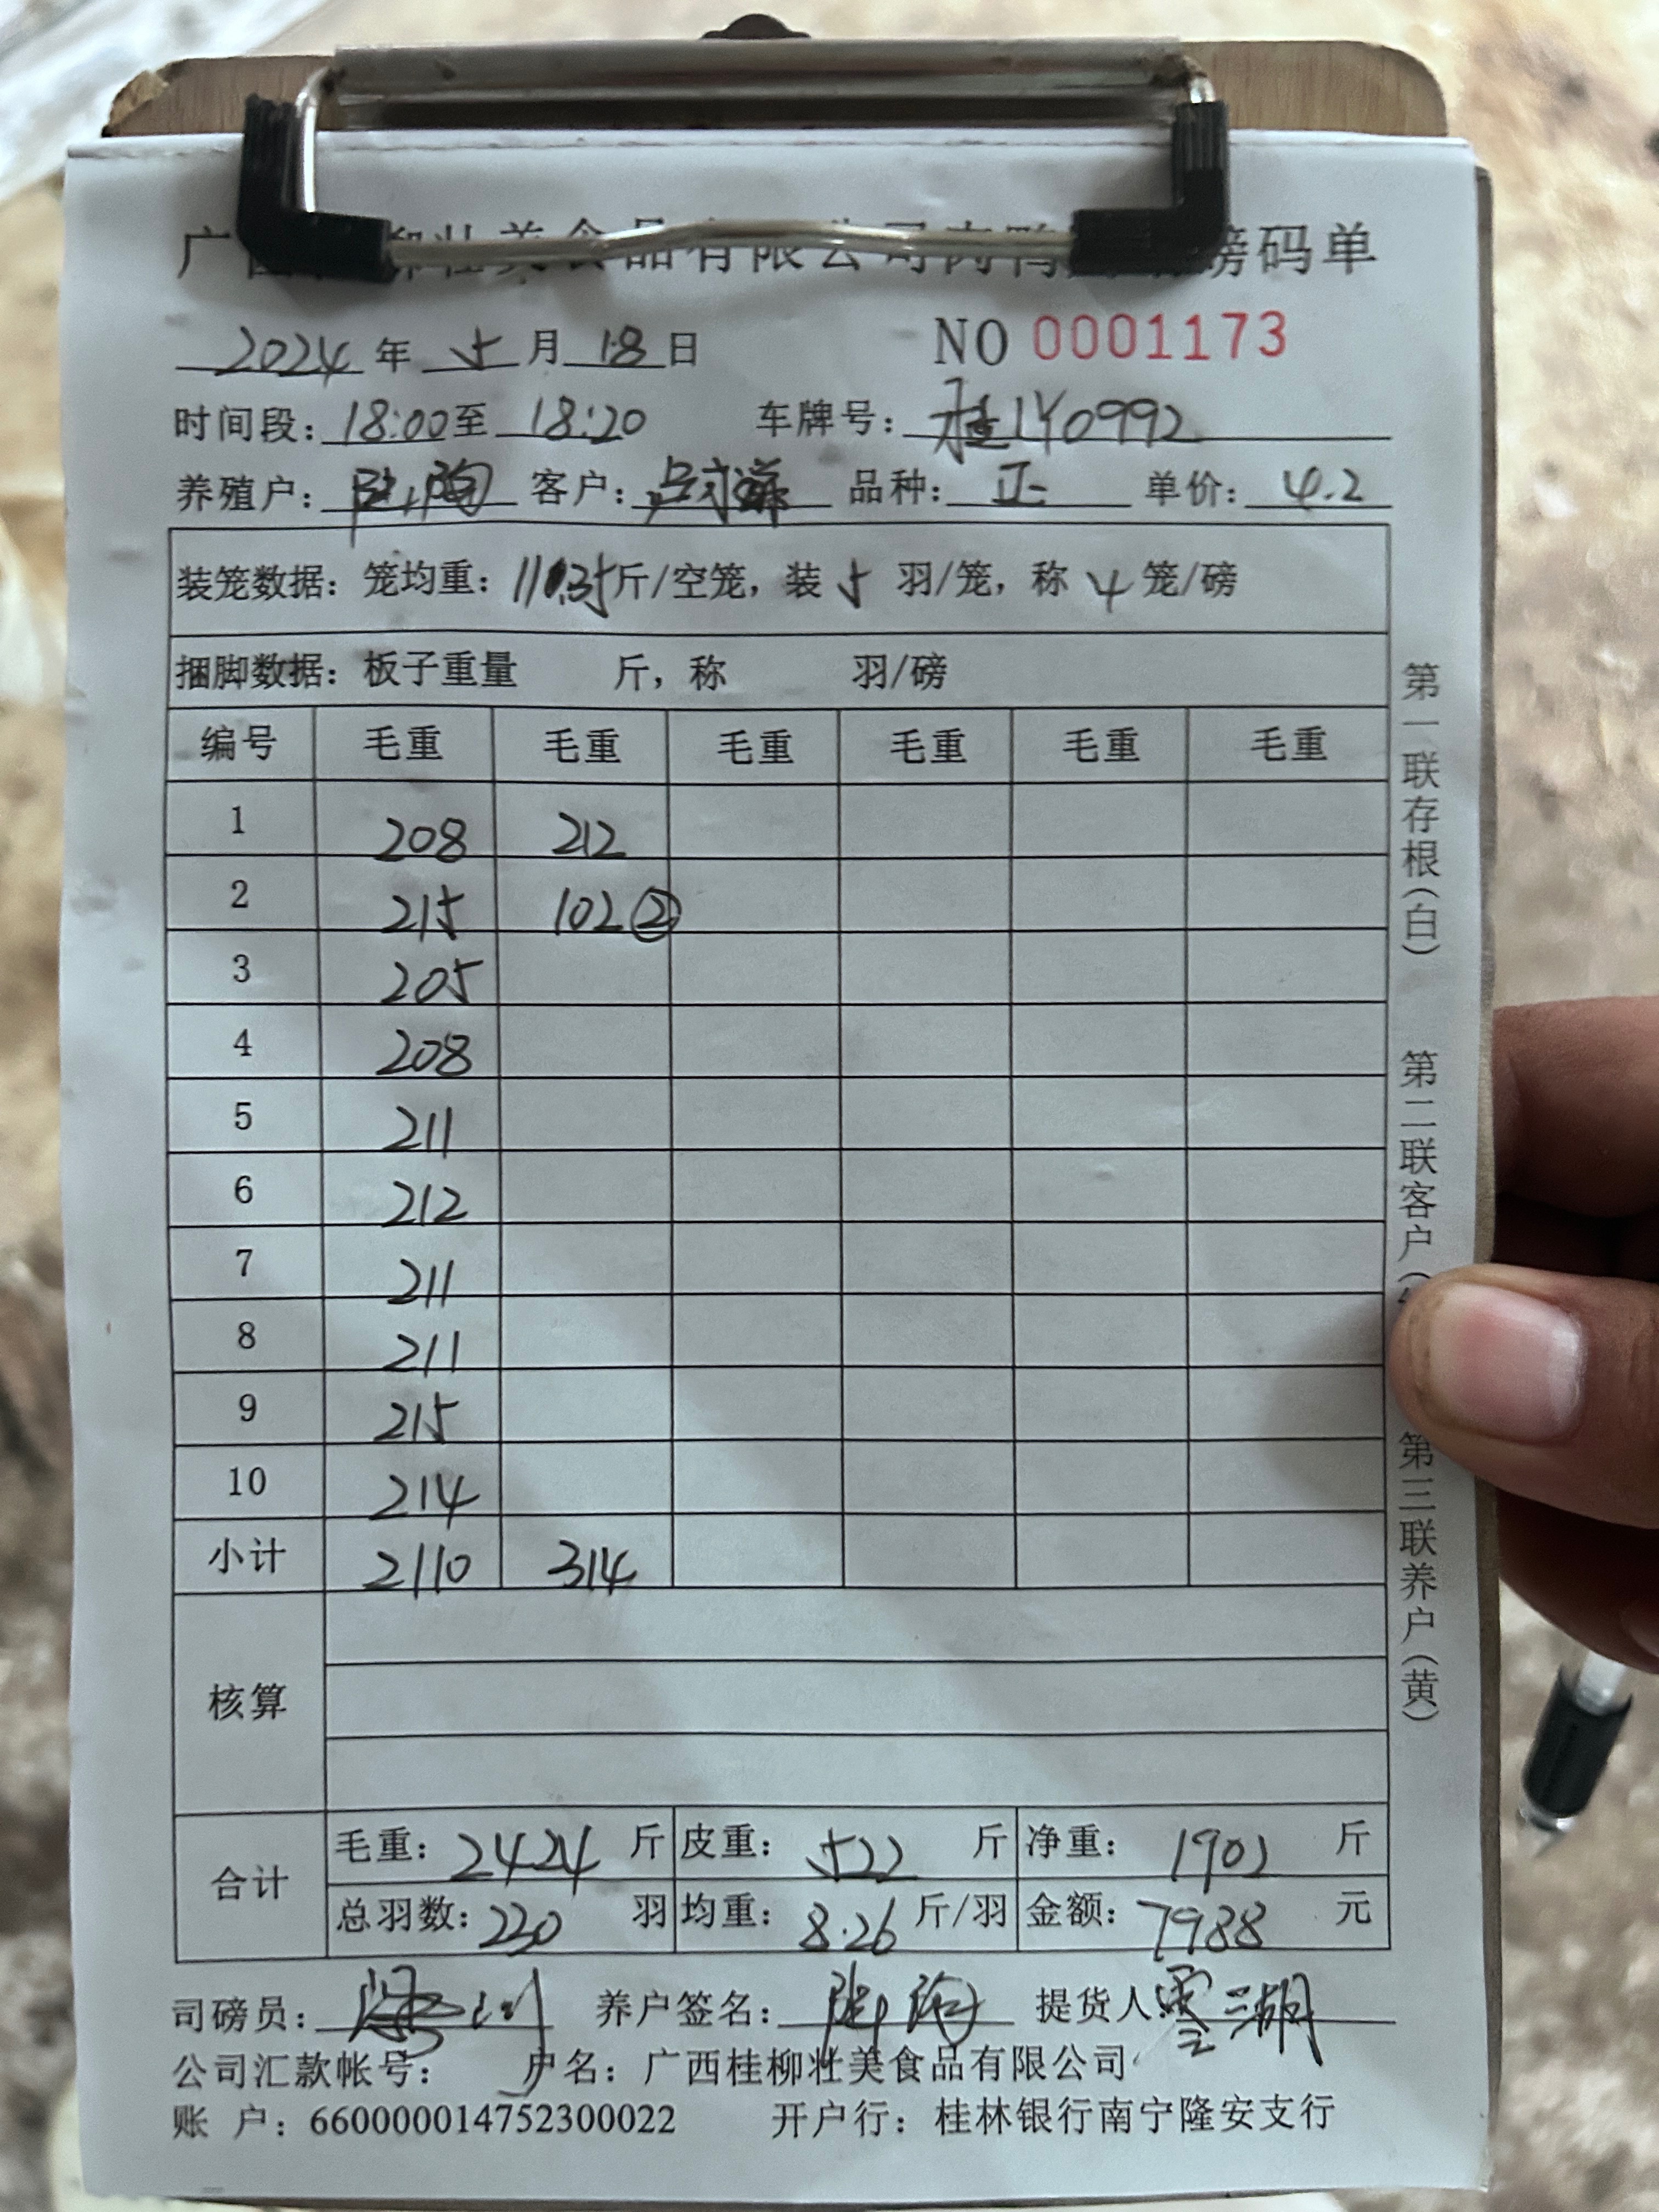 广 壮美食品有限公司肉鸭 磅码单
2024年 5月18日 NO 0001173
时间段：18:00至 18:20 车牌号：桂1Y0992
养殖户： 客户： 品种：正 单价：4.2
装笼数据：笼均重： 斤/空笼，装5羽/笼，称4笼/磅
捆脚数据：板子重量 斤，称 羽/磅
编号 毛重 毛重 毛重 毛重 毛重 毛重
1 208 212
2 215 102②
3 205
4 208
5 211
6 212
7 211
8 211
9 215
10 214
小计 2110 314
核算
合计 毛重：2424斤 皮重：522斤 净重：1902斤
总羽数：230羽 均重：8.26斤/羽 金额：7988元
司磅员： 养户签名： 提货人
公司汇款帐号： 户名：广西桂柳壮美食品有限公司
账 户：660000014752300022 开户行：桂林银行南宁隆安支行
第一联存根（白） 第二联客户 第三联养户（黄）